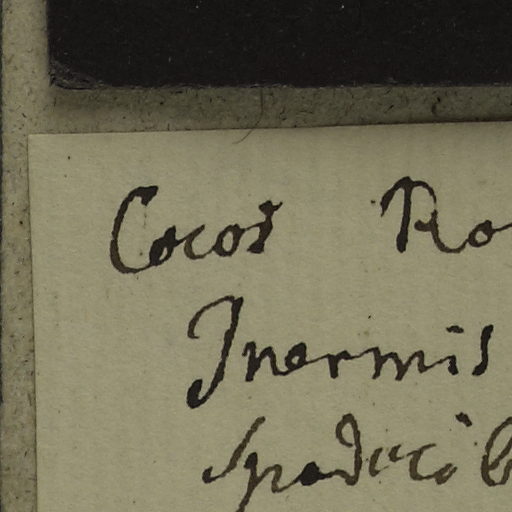 Cocos Ro
Inermis
Spadici b